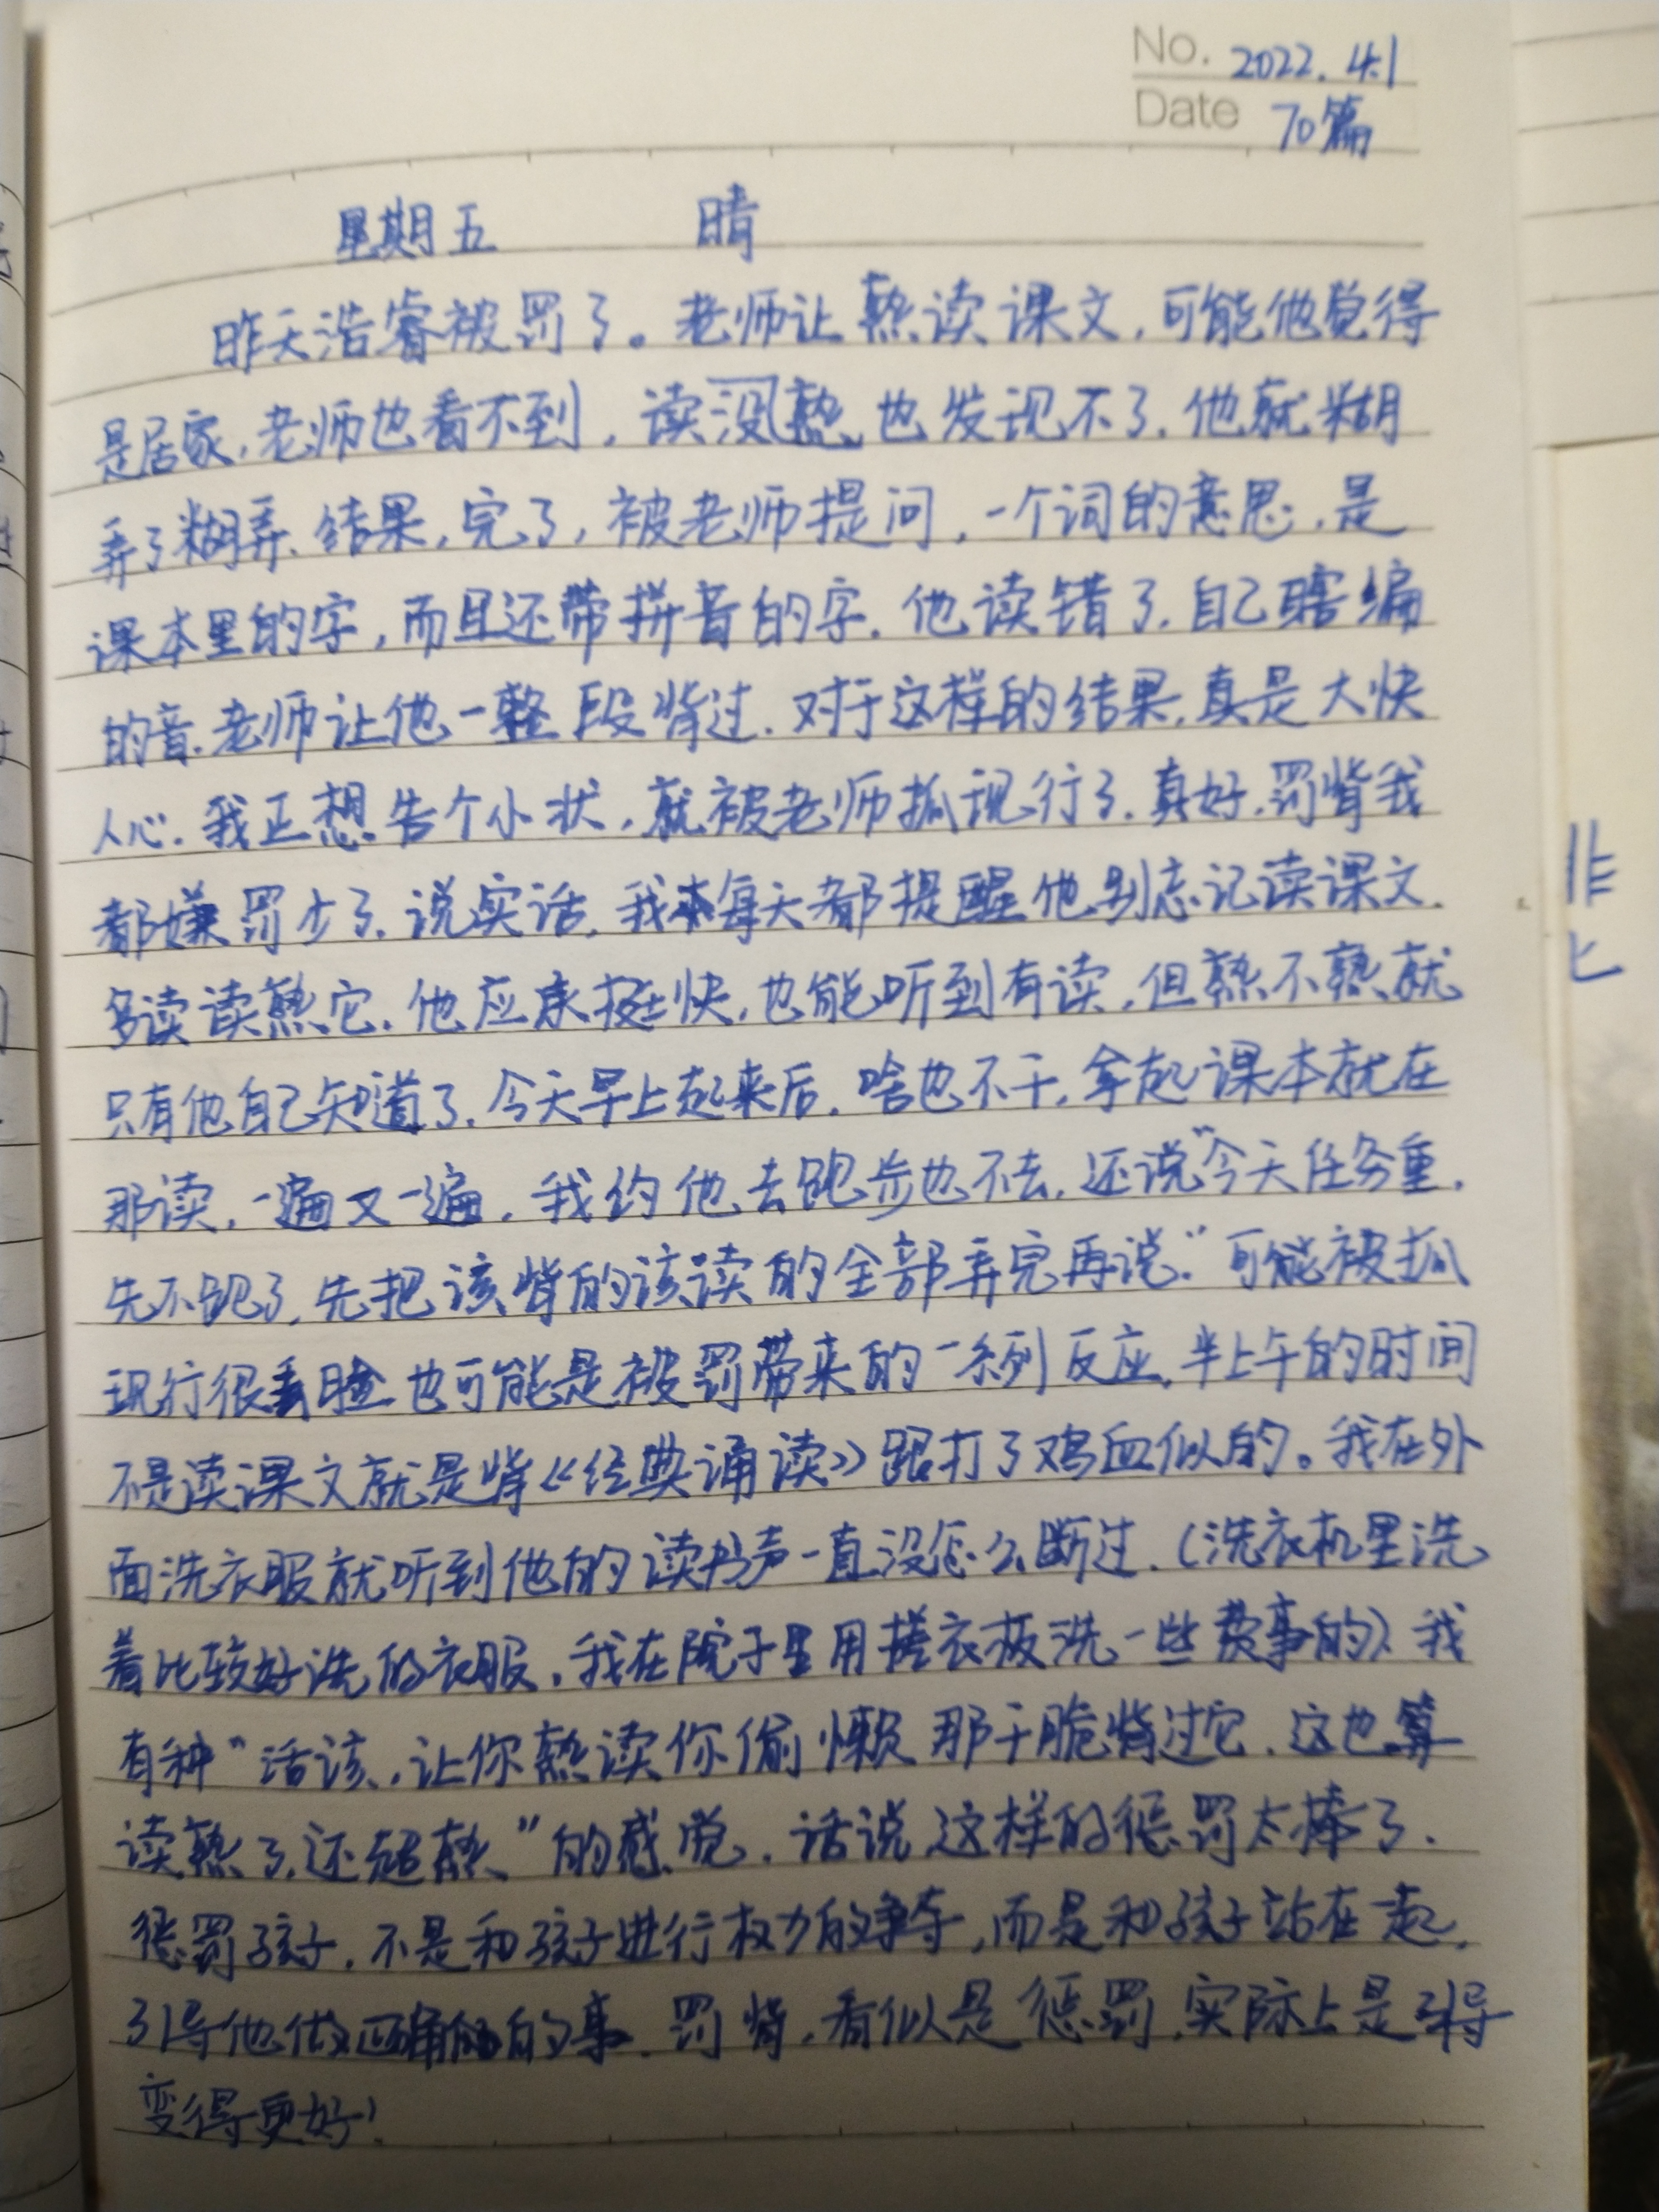 No. 2022.4.1
Date 70篇
星期五 晴
昨天浩睿被罚了。老师让熟读课文,可能他觉得
是居家,老师也看不到,读没熟也发现不了.他就糊
弄了糊弄.结果,完了,被老师提问,一个词的意思,是
课本里的字,而且还带拼音的字.他读错了.自己瞎编
的音.老师让他一整段背过.对于这样的结果,真是大快
人心.我正想告个小状,就被老师抓现行了.真好.罚背我
都嫌罚少了.说实话,我每天都提醒他别忘记读课文.
多读读熟它.他应承挺快,也能听到有读,但熟不熟就
只有他自己知道了.今天早上起来后,啥也不干,拿起课本就在
那读,一遍又一遍,我约他去跑步也不去,还说“今天任务重,
先不跑了,先把该背的该读的全部弄完再说.”可能被抓
现行很丢脸也可能是被罚带来的一系列反应,半上午的时间
不是读课文就是背《经典诵读》跟打了鸡血似的。我在外
面洗衣服就听到他的读书声一直没怎么断过.(洗衣机里洗
着比较好洗的衣服,我在院子里用搓衣板洗一些费事的).我
有种“活该,让你熟读你偷懒那干脆背过它.这也算
读熟了.还超熟”的感觉.话说这样的惩罚太棒了.
惩罚孩子,不是和孩子进行权力的争夺,而是和孩子站在一起,
引导他做正确的事.罚背,看似是惩罚,实际上是引导
变得更好!